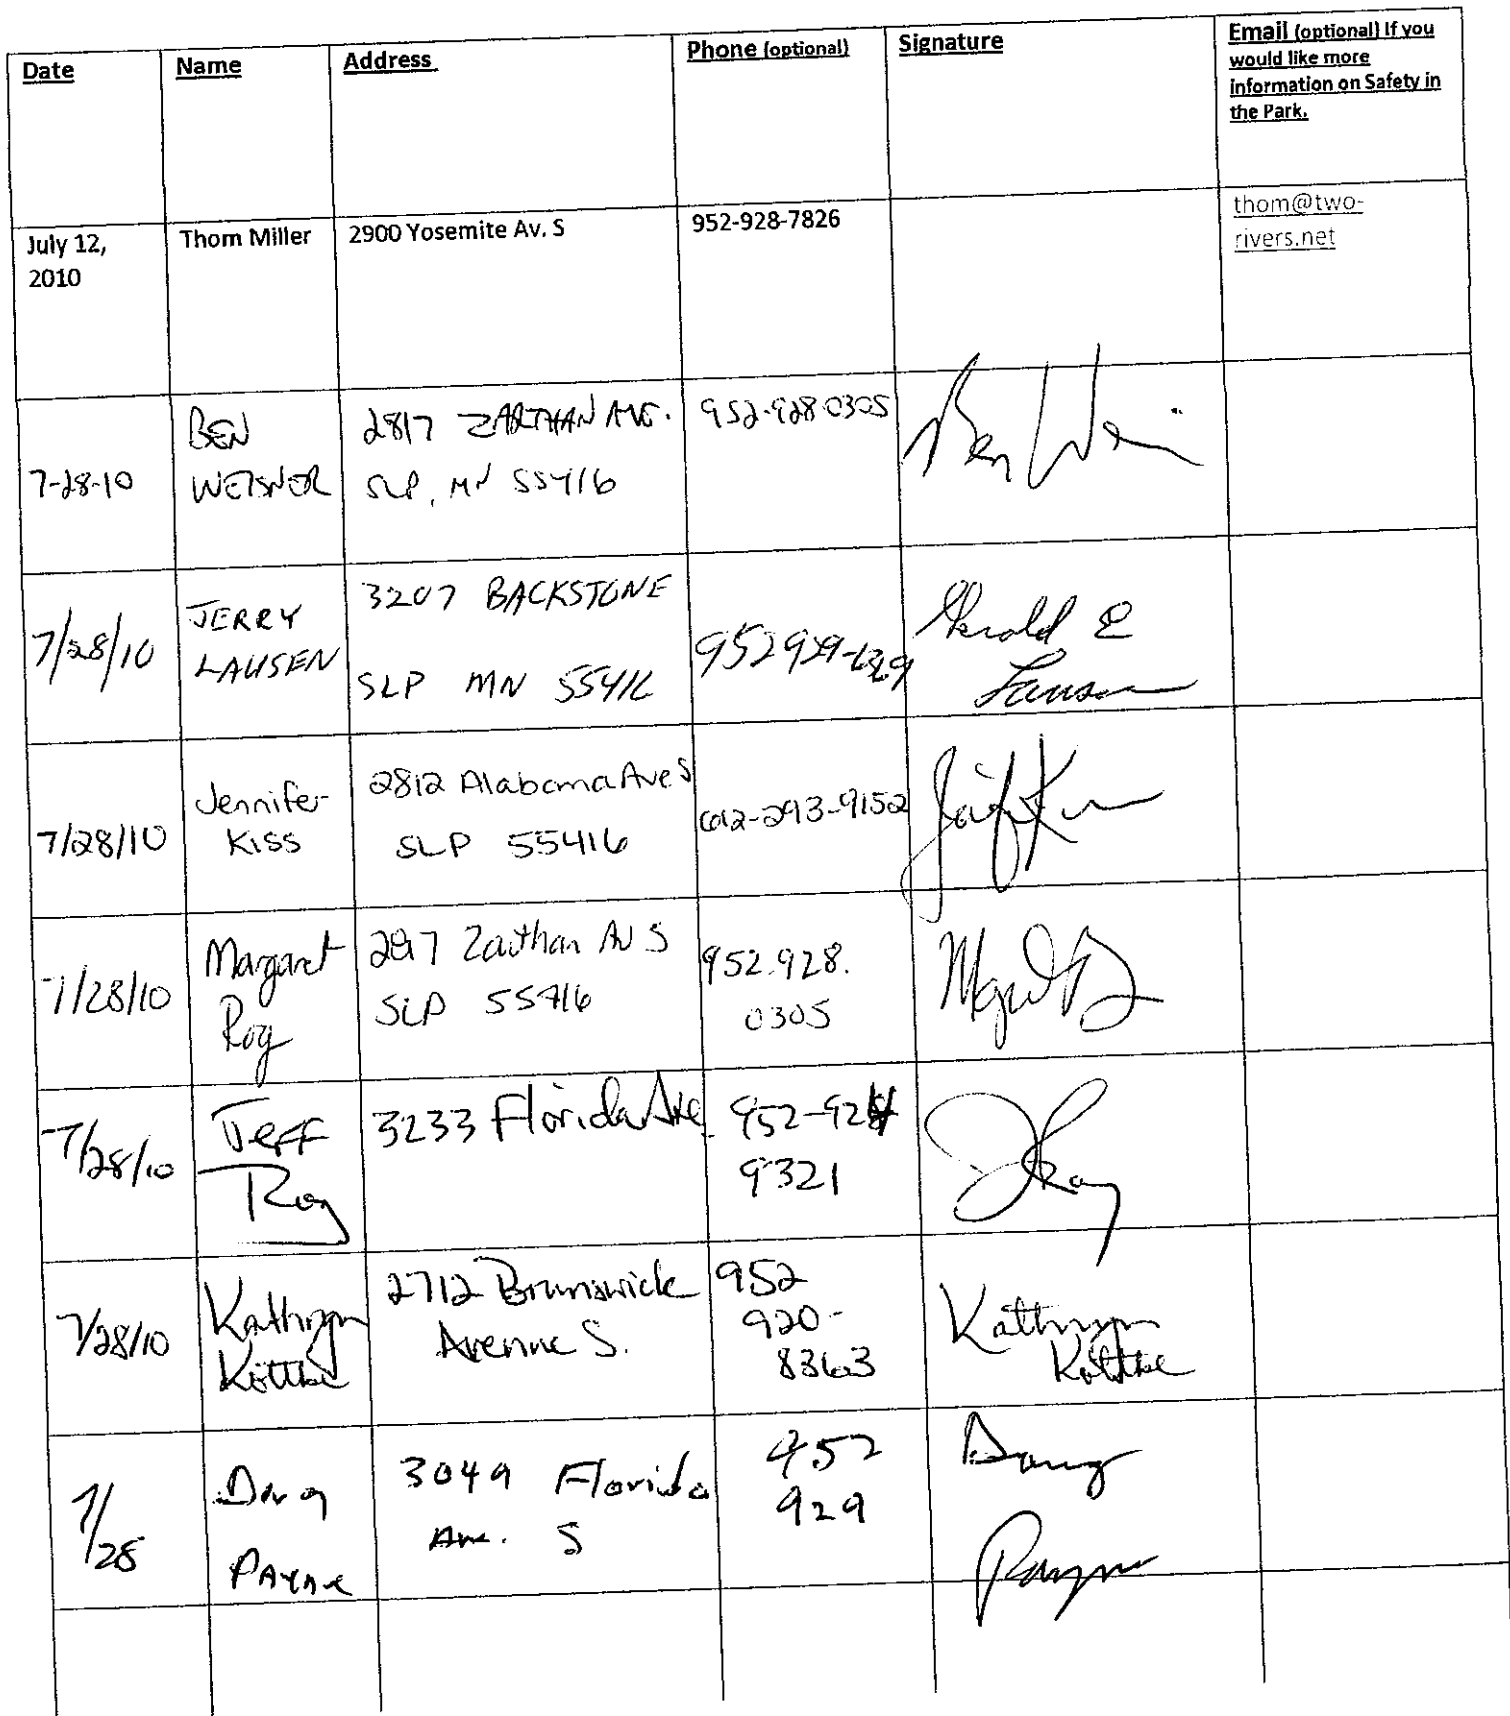 Date
Name
Address
Phone (optional)
Signature
Email (optional) If you
would like more
information on Safety in
the Park.
July 12,
2010
Thom Miller
2900 Yosemite Av. S
952-928-7826
thom@two-
rivers.net
7-28-10
BEN
WEISNER
2817 ZARTHAN AVE.
SLP, MN 55416
952-928-0305
Ben
7/28/10
JERRY
LAUSEN
3207 BACKSTONE
SLP MN 55416
952 929-1329
Gerald E
Lausen
7/28/10
Jennifer
Kiss
2812 Alabama Ave S
SLP 55416
612-293-9152
7/28/10
Margaret
Rog
Zarthan Av S
SLP 55416
952.928.
0305
7/28/10
Jeff
Roy
3233 Florida Ave.
952-924
9321
7/28/10
Kathryn
Kottke
2712 Brunswick
Avenue S.
952
920-
8363
Kathryn
Kottke
7/
28
Doug
PAYNE
3049 Florida
Ave. S
952
929
Doug
Payne